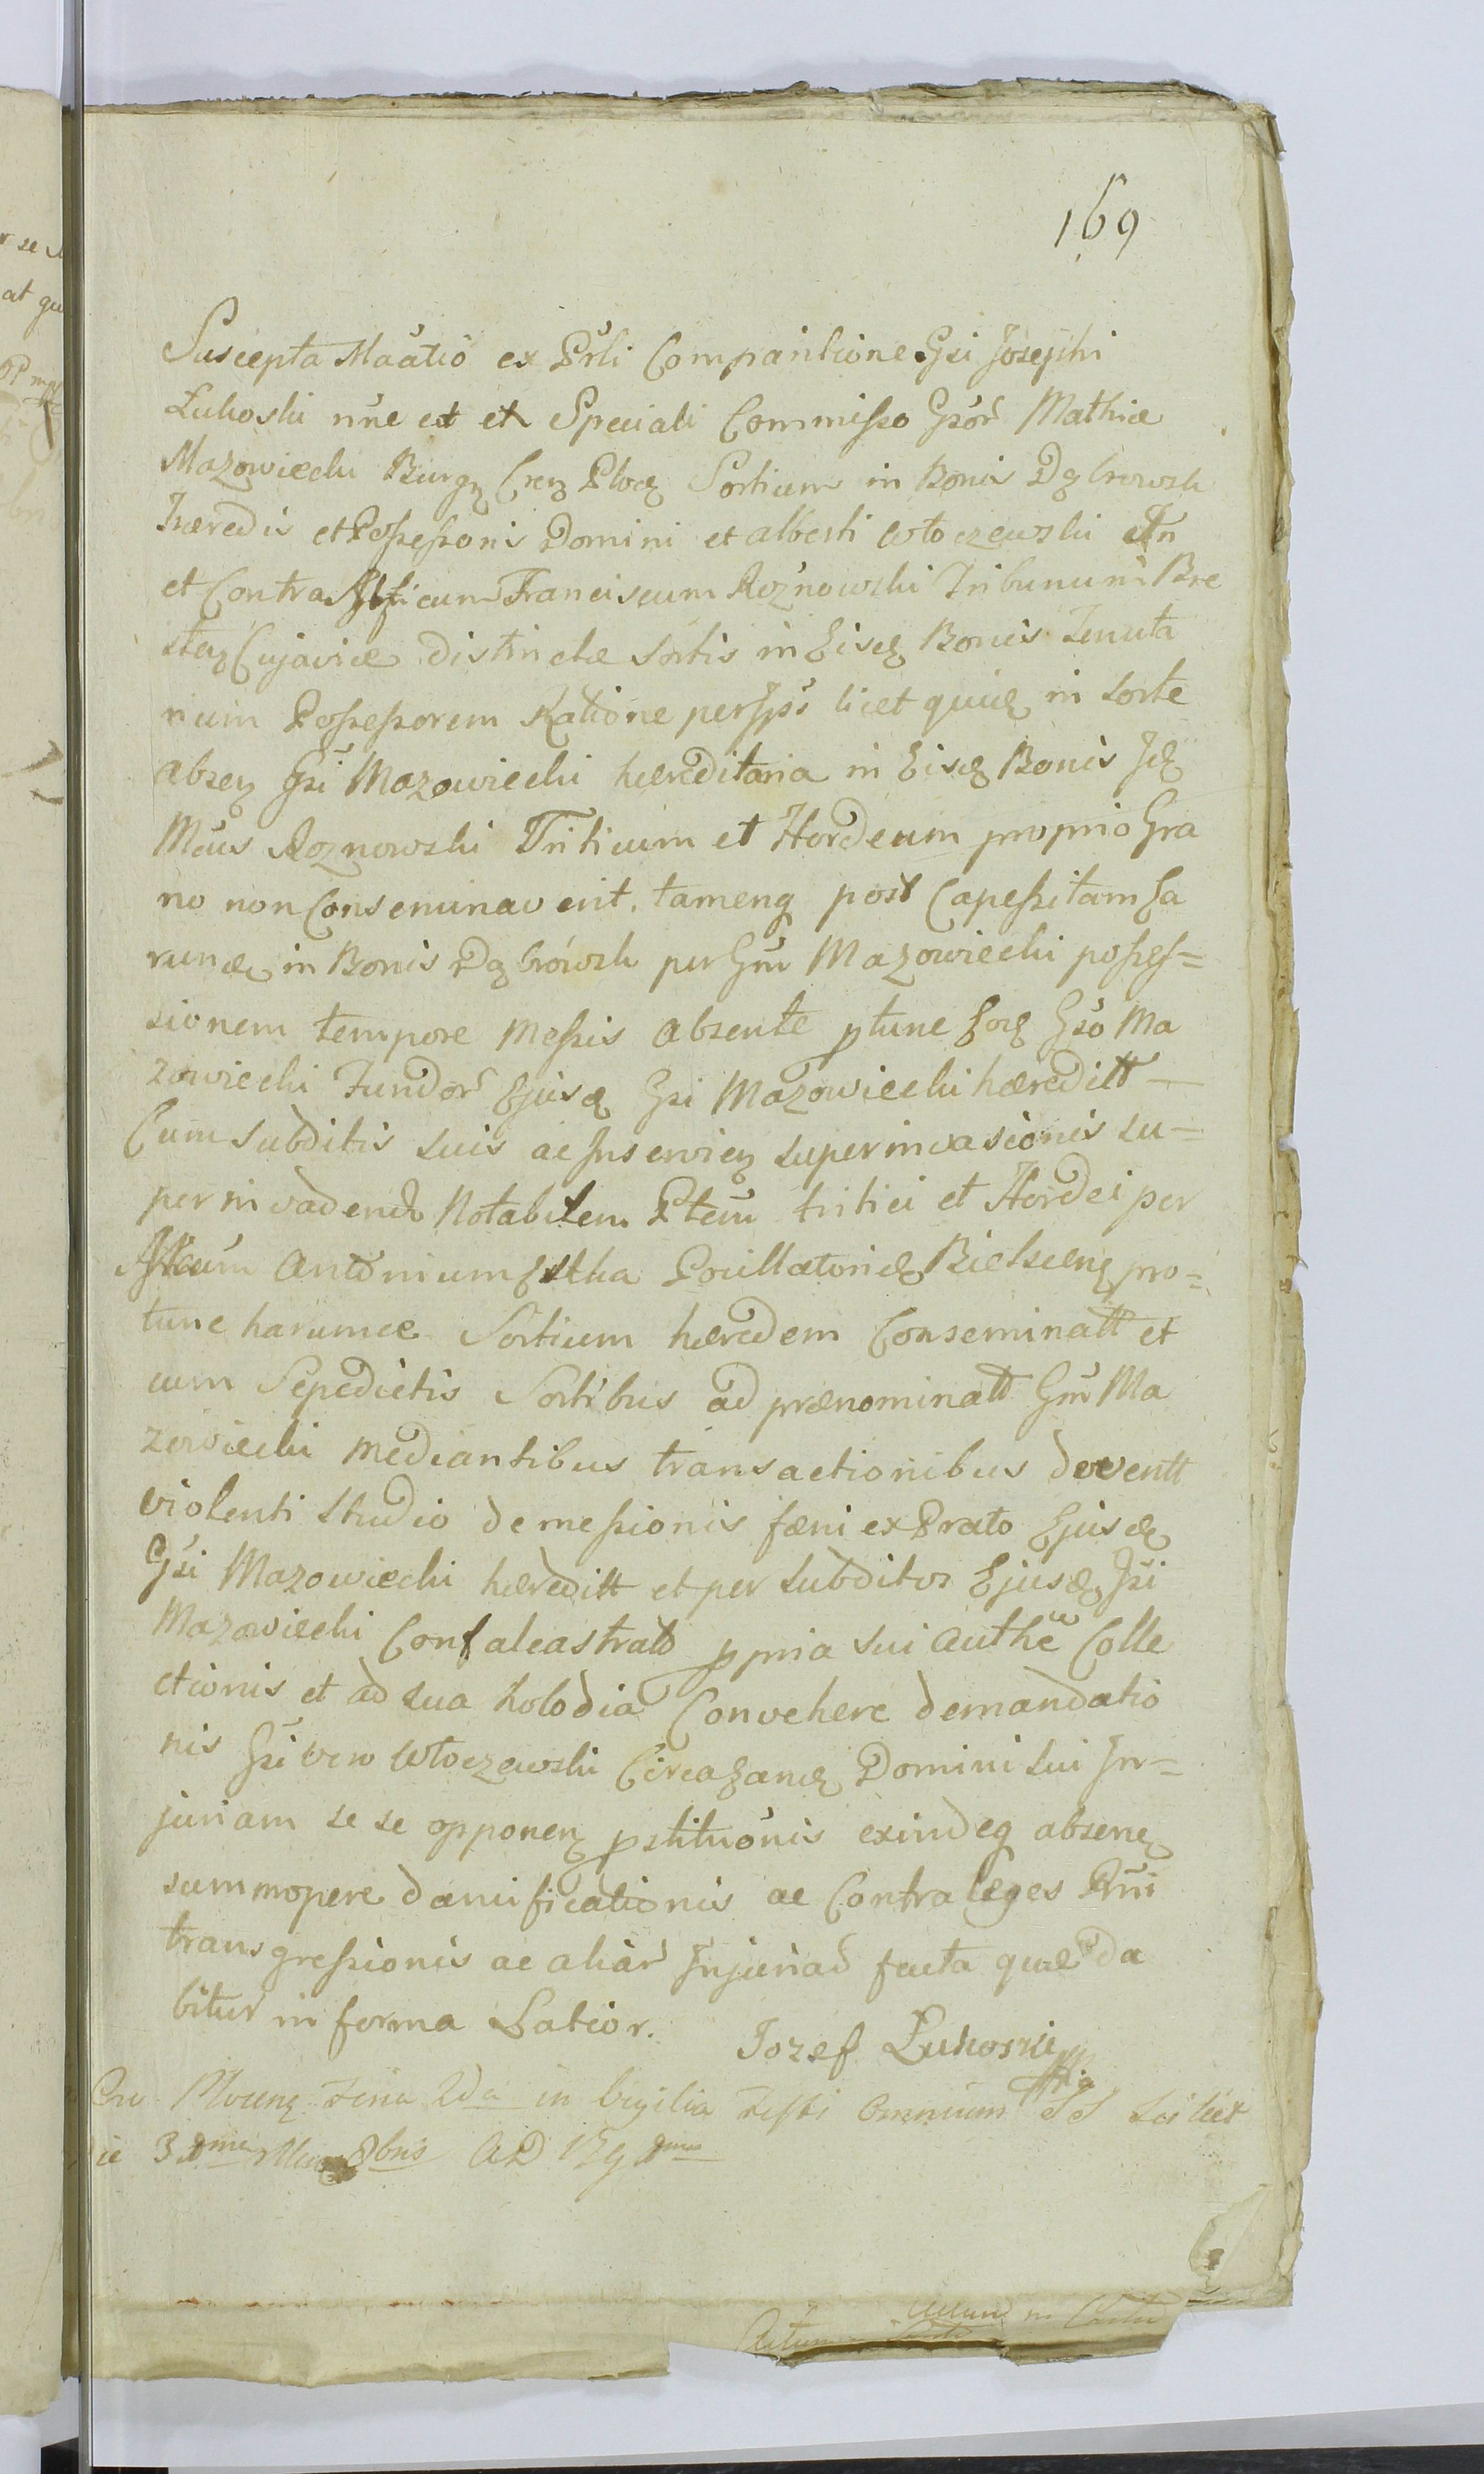 169
Suscepta Maãtio ex Prli Comparitione Gsi Josephi
Łukoski nñe et et Speciali Commisso Gsor Mathiæ
Mazowiecki Burgȝ Crenȝ Plocȝ Sortium in Bonis Dąbrowsk
hæredis et Possessoris Domini et alberti Włoczewski
et Contra Franciscum Roznowski Tribunum Bre
stenȝ Cujaviæ distinctæ sortis in Eisdȝ Bonis Tenuta
rium Possessorem Ratione per Ipss licet quidȝ in sorte
absenȝ Gsi Mazowiecki hæreditaria in Eisdȝ Bonis Idȝ
Mcus Roznowski Triticum et Hordeum proprio Gra
no non Conseminaverit. tamenq post Capessitam Ea
rundȝ in Bonis Dąbrówsk per Gm Mazowiecki posses=
sionem tempore Messis absente ptunc Eodȝ Gso Ma
zowiecki Fundor Ejusdȝ Gsi Mazowiecki hæreditt
Cum subditis suis ac Inservienȝ superinvasionis su=
per invadendo Notabilem Ptem tritici et Hordei per
Antonium Pocillatoridȝ Bielscenȝ pro=
tunc harumce Sortium hæredem Conseminatt et
cum Sepedictis Sortibus ad prænominatt Gm Ma
zowiecki mediantibus transactionibus deventt
violenti studio demessionis fæni ex Prato Ejusdȝ
Gsi Mazowiecki hæreditt et per subditos Ejusdȝ Gsi
Mazowiecki Confalcastrato ppria sui Authẽ Colle
ctionis et ad sua holodia Convehere demandatio
nis Gsi vero Włoczewski Circa Eandȝ Domini sui In=
juriam se se opponenȝ pstituonis exindeq absenȝ
summopere damificationis ac Contra leges Rñi
transgressionis ac aliar Injuriar facta quæ da
bitur in forma Latior.
Jozef Łukoski
feria 2da in Vigilia Festi Omnium SS scilicet
8bris AD
Actum in